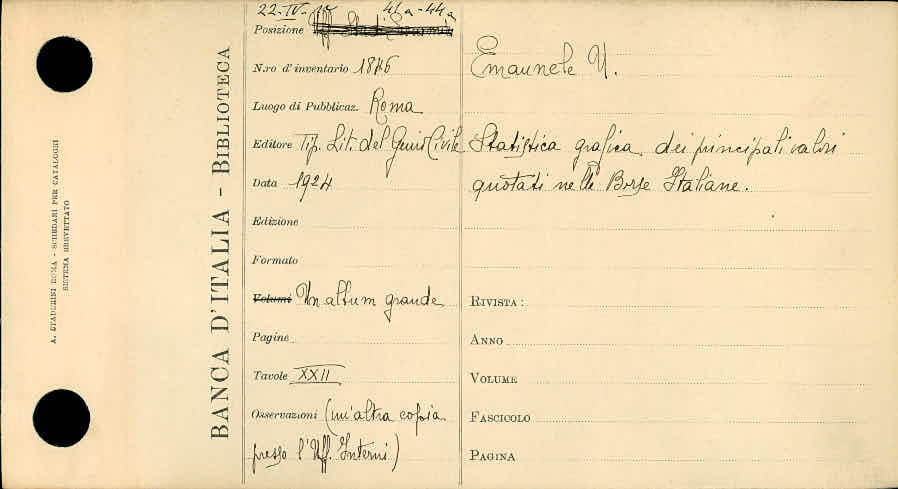 A. STADERINI ROMA - SCHEDARI PER CATALOGHI
SISTEMA BREVETTATO
BANCA D'ITALIA - BIBLIOTECA
22-IV- 41a-44a
Posizione Uff.
N.ro d'inventario 1846
Luogo di Pubblicaz. Roma
Editore Tip. Lit. del Genio Civile
Data 1924
Edizione
Formato
Volumi Un album grande
Pagine
Tavole XXII
Osservazioni (un'altra copia
presso l'Uff. Interni)
Emaunele U.
Statistica grafica dei principali valori
quotati nelle Borse Italiane.
RIVISTA:
ANNO
VOLUME
FASCICOLO
PAGINA